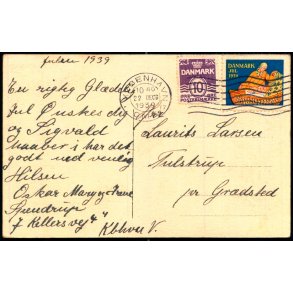 Julen 1939
En rigtig Glædelig
Jul Ønskes dig
og Sigvald
haaber i har det
godt ved venlig
Hilsen
Oskar Mary
Spendrup
7 Kellersvej 4
Kbhvn V.
KØBENHAVN
1939
DANMARK
10
DANMARK
JUL
1939
Laurits Larsen
Tulstrup
pr Grædsted